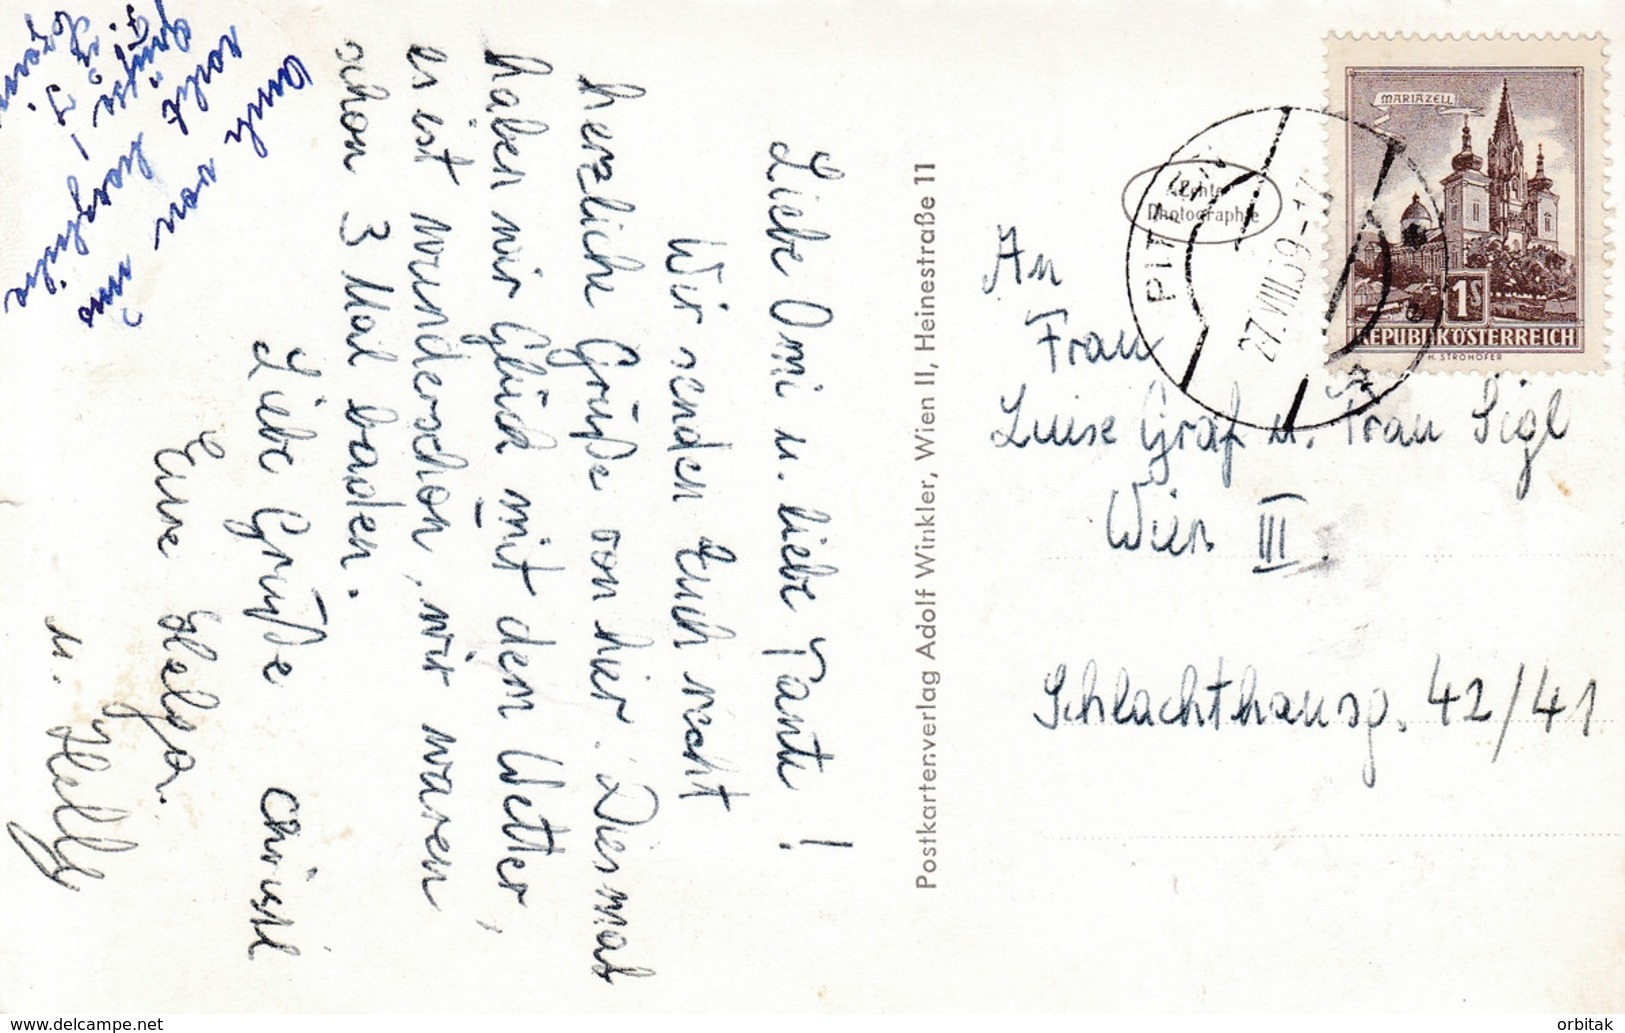 Liebe Omi u. liebe Tante!
Wir senden Euch recht
herzliche Grüße von hier. Diesmal
haben wir Glück mit dem Wetter,
es ist wunderschön, wir waren
schon 3 Mal baden.
Liebe Grüße Christl
Eure Helga.
u. Helly
Auch von uns
recht herzliche
Grüße
Postkartenverlag Adolf Winkler, Wien II, Heinestraße 11
Echte
Photographie
27.VIII.59
MARIAZELL
1S
REPUBLIK ÖSTERREICH
H. STROHOFER
An
Frau
Luise Graf u. Frau Sigl
Wien III.
Schlachthausg. 42/41
www.delcampe.net
orbitak